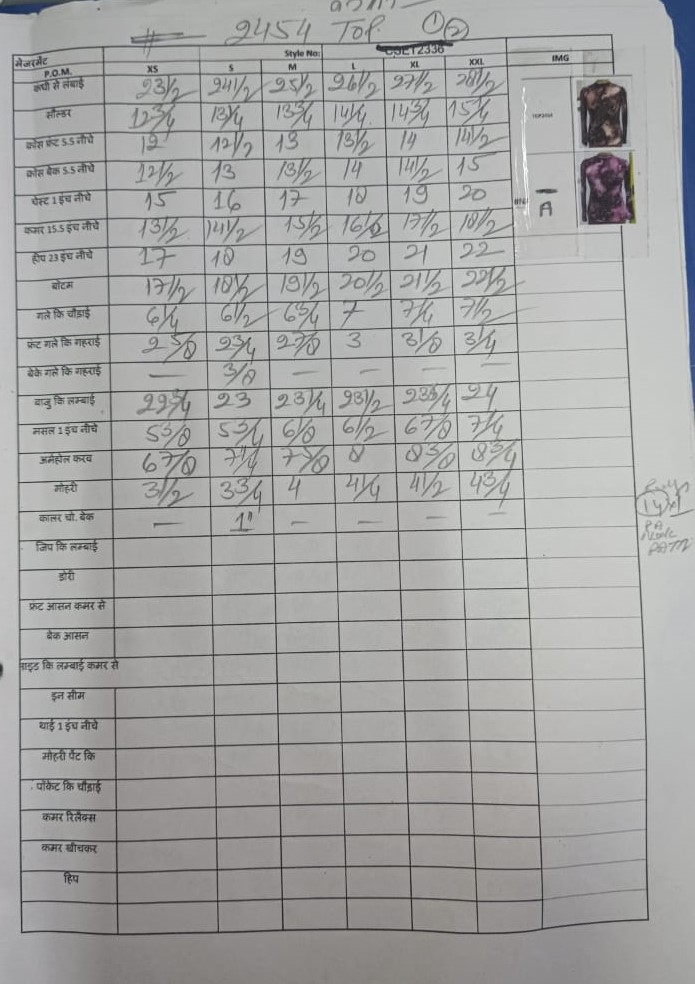 2454 Top ① ②
मेजरमेंट Style No: CSET2338
P.O.M. XS S M L XL XXL IMG
कंधी से लंबाई 23 1/2 24 1/2 25 1/2 26 1/2 27 1/2 28 1/2
सोल्डर 12 3/4 13 1/4 13 3/4 14 1/4 14 3/4 15 1/4
क्रोस फ्रंट 5.5 नीचे 12 12 1/2 13 13 1/2 14 14 1/2
क्रोस बेक 5.5 नीचे 12 1/2 13 13 1/2 14 14 1/2 15
चेस्ट 1 इंच नीचे 15 16 17 18 19 20
A
कमर 15.5 इंच नीचे 13 1/2 14 1/2 15 1/2 16 1/2 17 1/2 18 1/2
हीप 23 इंच नीचे 17 18 19 20 21 22
बोटम 17 1/2 18 1/2 19 1/2 20 1/2 21 1/2 22 1/2
गले कि चौड़ाई 6 1/4 6 1/2 6 3/4 7 7 1/4 7 1/2
फ्रंट गले कि गहराई 2 5/8 2 3/4 2 7/8 3 3 1/8 3 1/4
बेके गले कि गहराई — 3/8 — — — —
बाजु कि लम्बाई 22 3/4 23 23 1/4 23 1/2 23 3/4 24
मसल 1 इंच नीचे 5 3/8 5 3/4 6 1/8 6 1/2 6 7/8 7 1/4
अमेहोल करव 6 7/8 7 1/4 7 5/8 8 8 3/8 8 3/4
मोहरी 3 1/2 3 3/4 4 4 1/4 4 1/2 4 3/4
कालर चो. बेक — 1" — — — —
जिप कि लम्बाई
डोरी
फ्रंट आसन कमर से
बेक आसन
साइड कि लम्बाई कमर से
इन सीम
थाई 1 इंच नीचे
मोहरी पेंट कि
पोकेट कि चौड़ाई
कमर रिलैक्स
कमर खीचकर
हिप